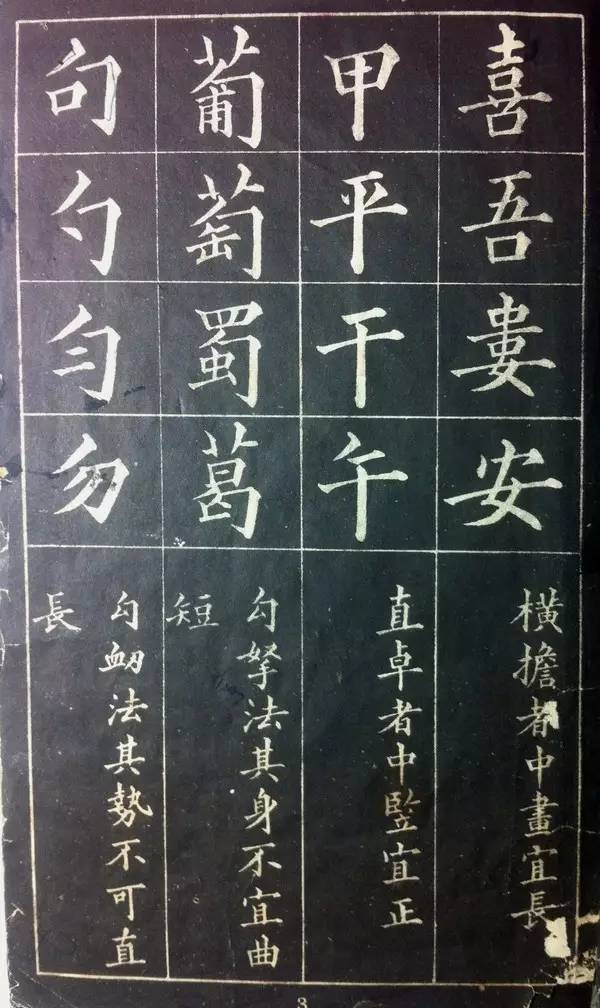 喜
吾
婁
安
橫擔者中畫宜長
甲
平
干
午
直卓者中竪宜正
葡
萄
蜀
葛
勾拏法其身不宜曲
短
句
勺
勻
勿
勾衂法其勢不可直
長
3